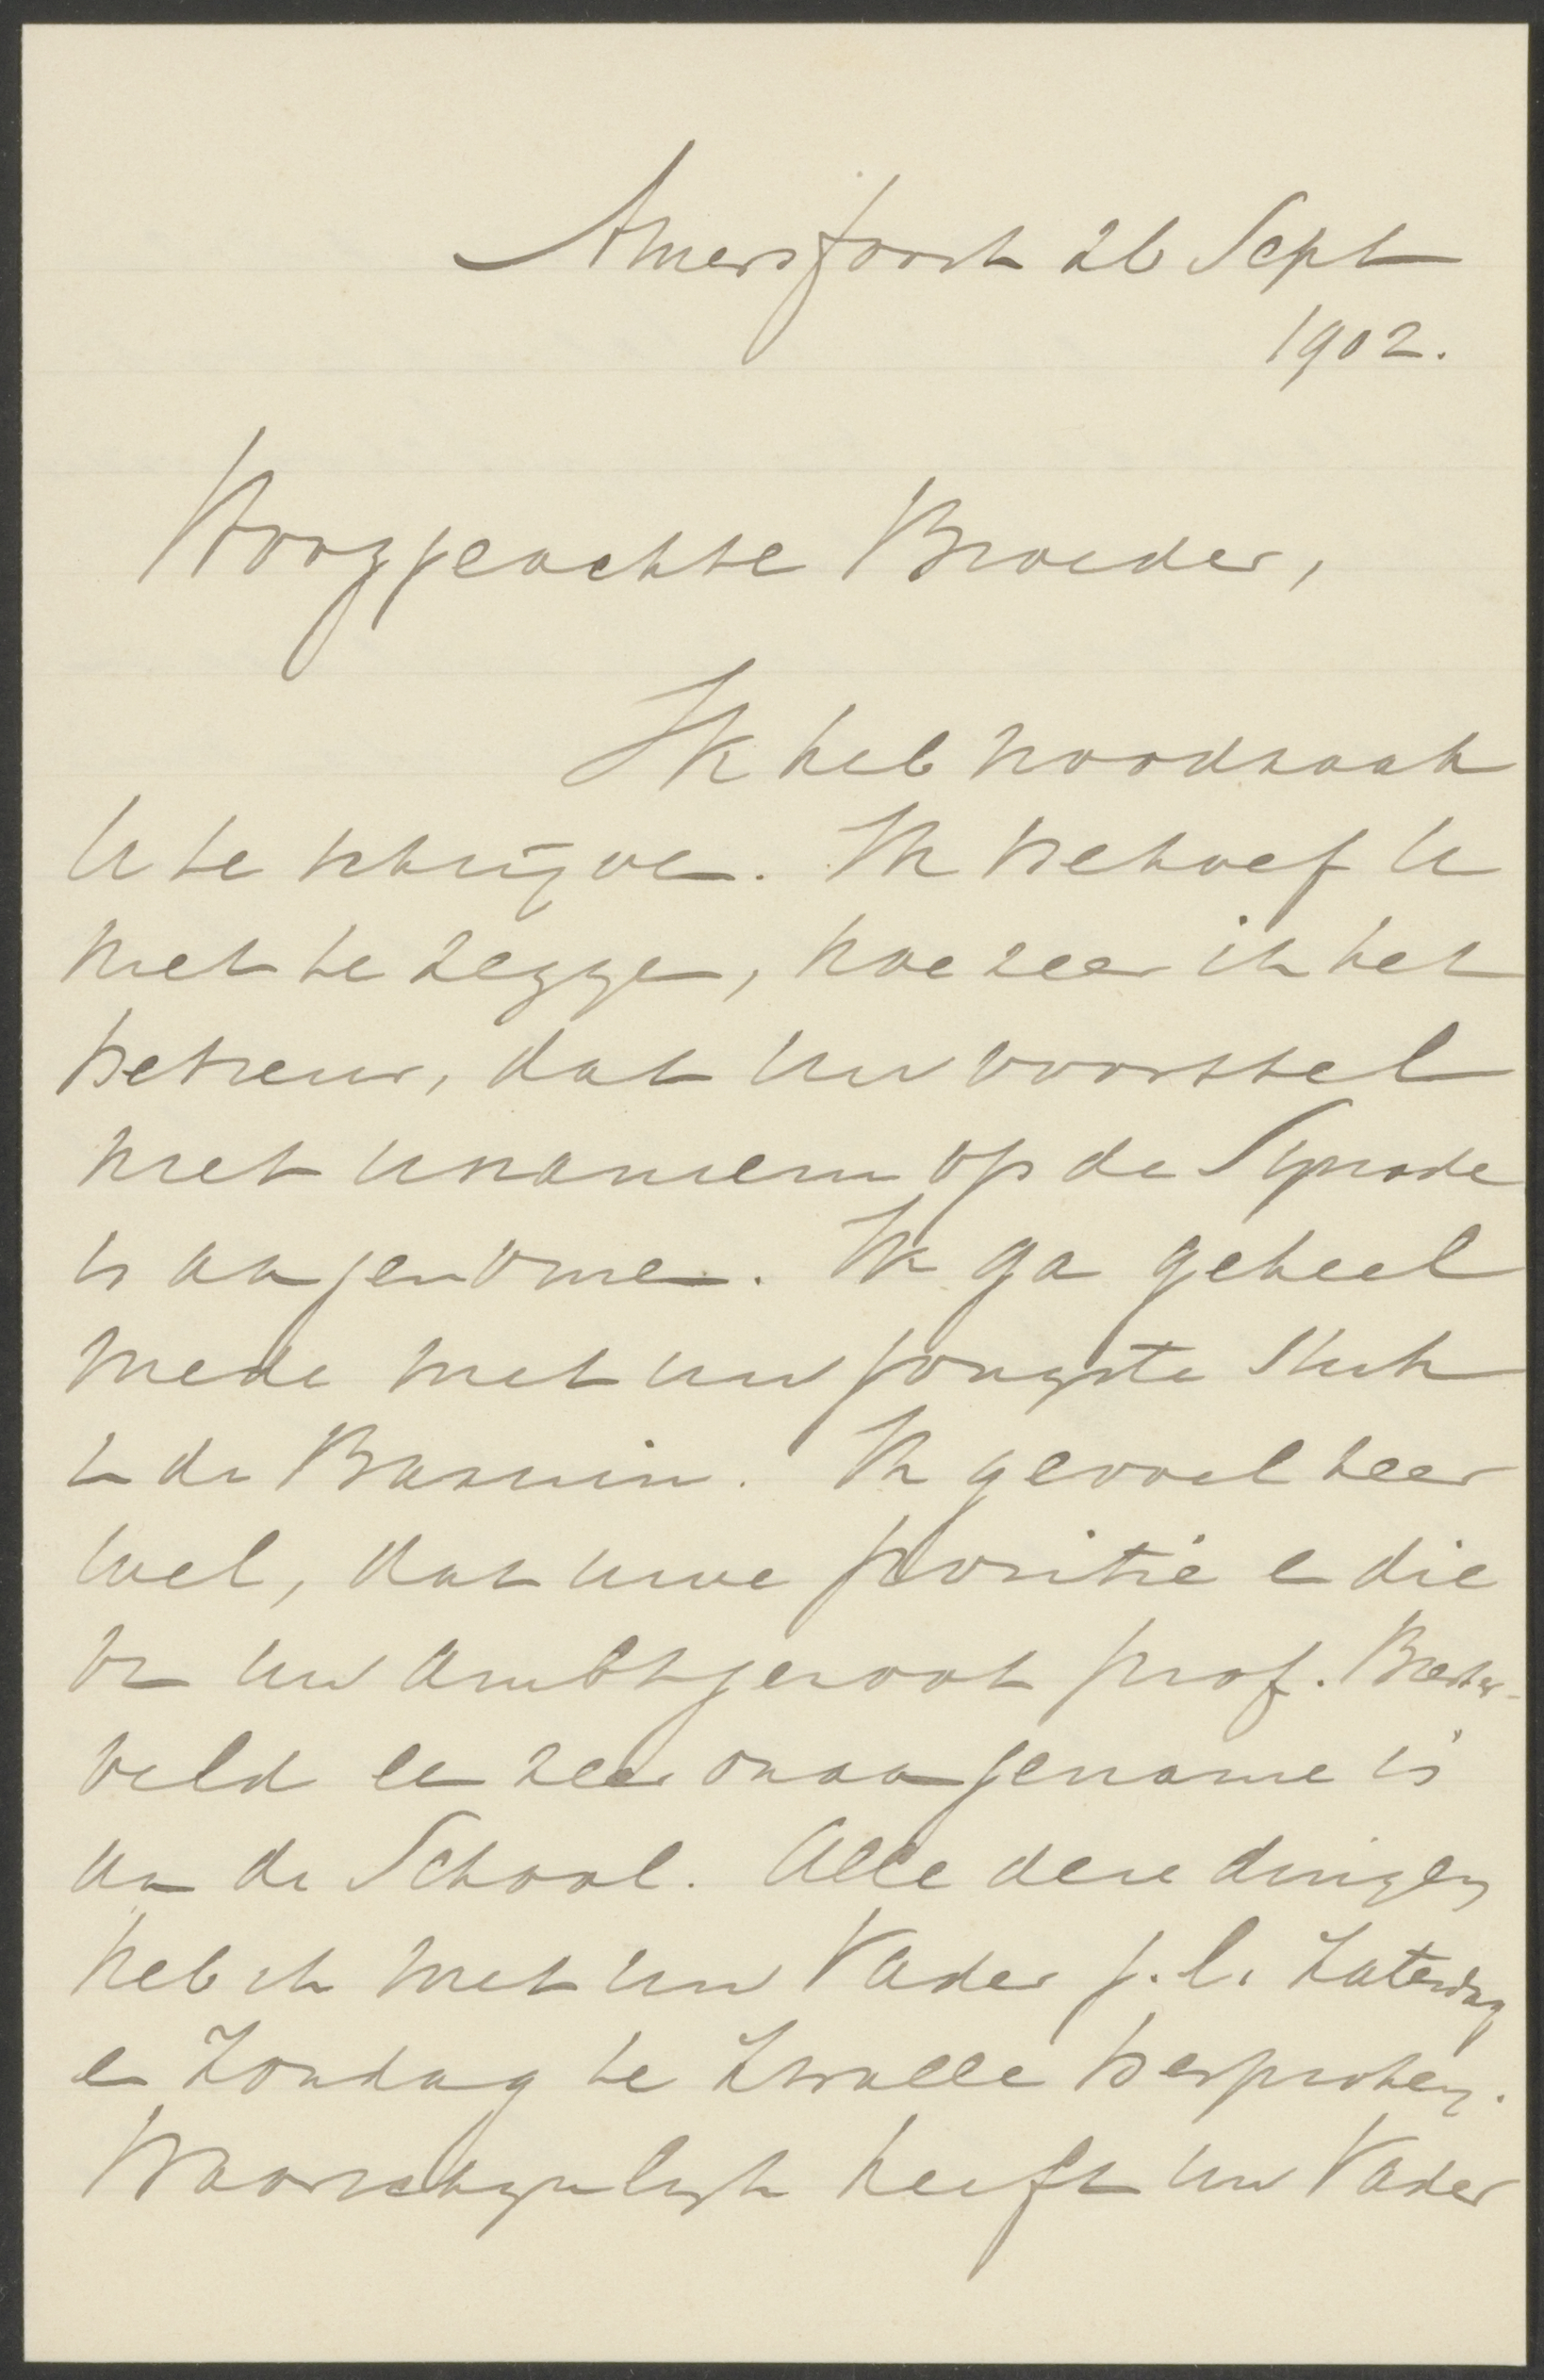 Amersfoort 26 Sept
1902.
Hooggeachte Broeder,
Ik heb noodzaak
U te schrijven. Ik behoef U
niet te zeggen, hoe zeer ik het
betreur, dat uw voorstel
niet unaniem op de Synode
is aangenomen. Ik ga geheel
mede met uw jongste stuk
in de Bazuin. Ik gevoel zeer
wel, dat uwe positie en die
van uw ambtgenoot prof. Biester-
veld een zeer onaangename is
aan de School. Alle deze dingen
heb ik met uw Vader j.l. Zaterdag
en Zondag te Zwolle besproken.
Waarschijnlijk heeft uw Vader